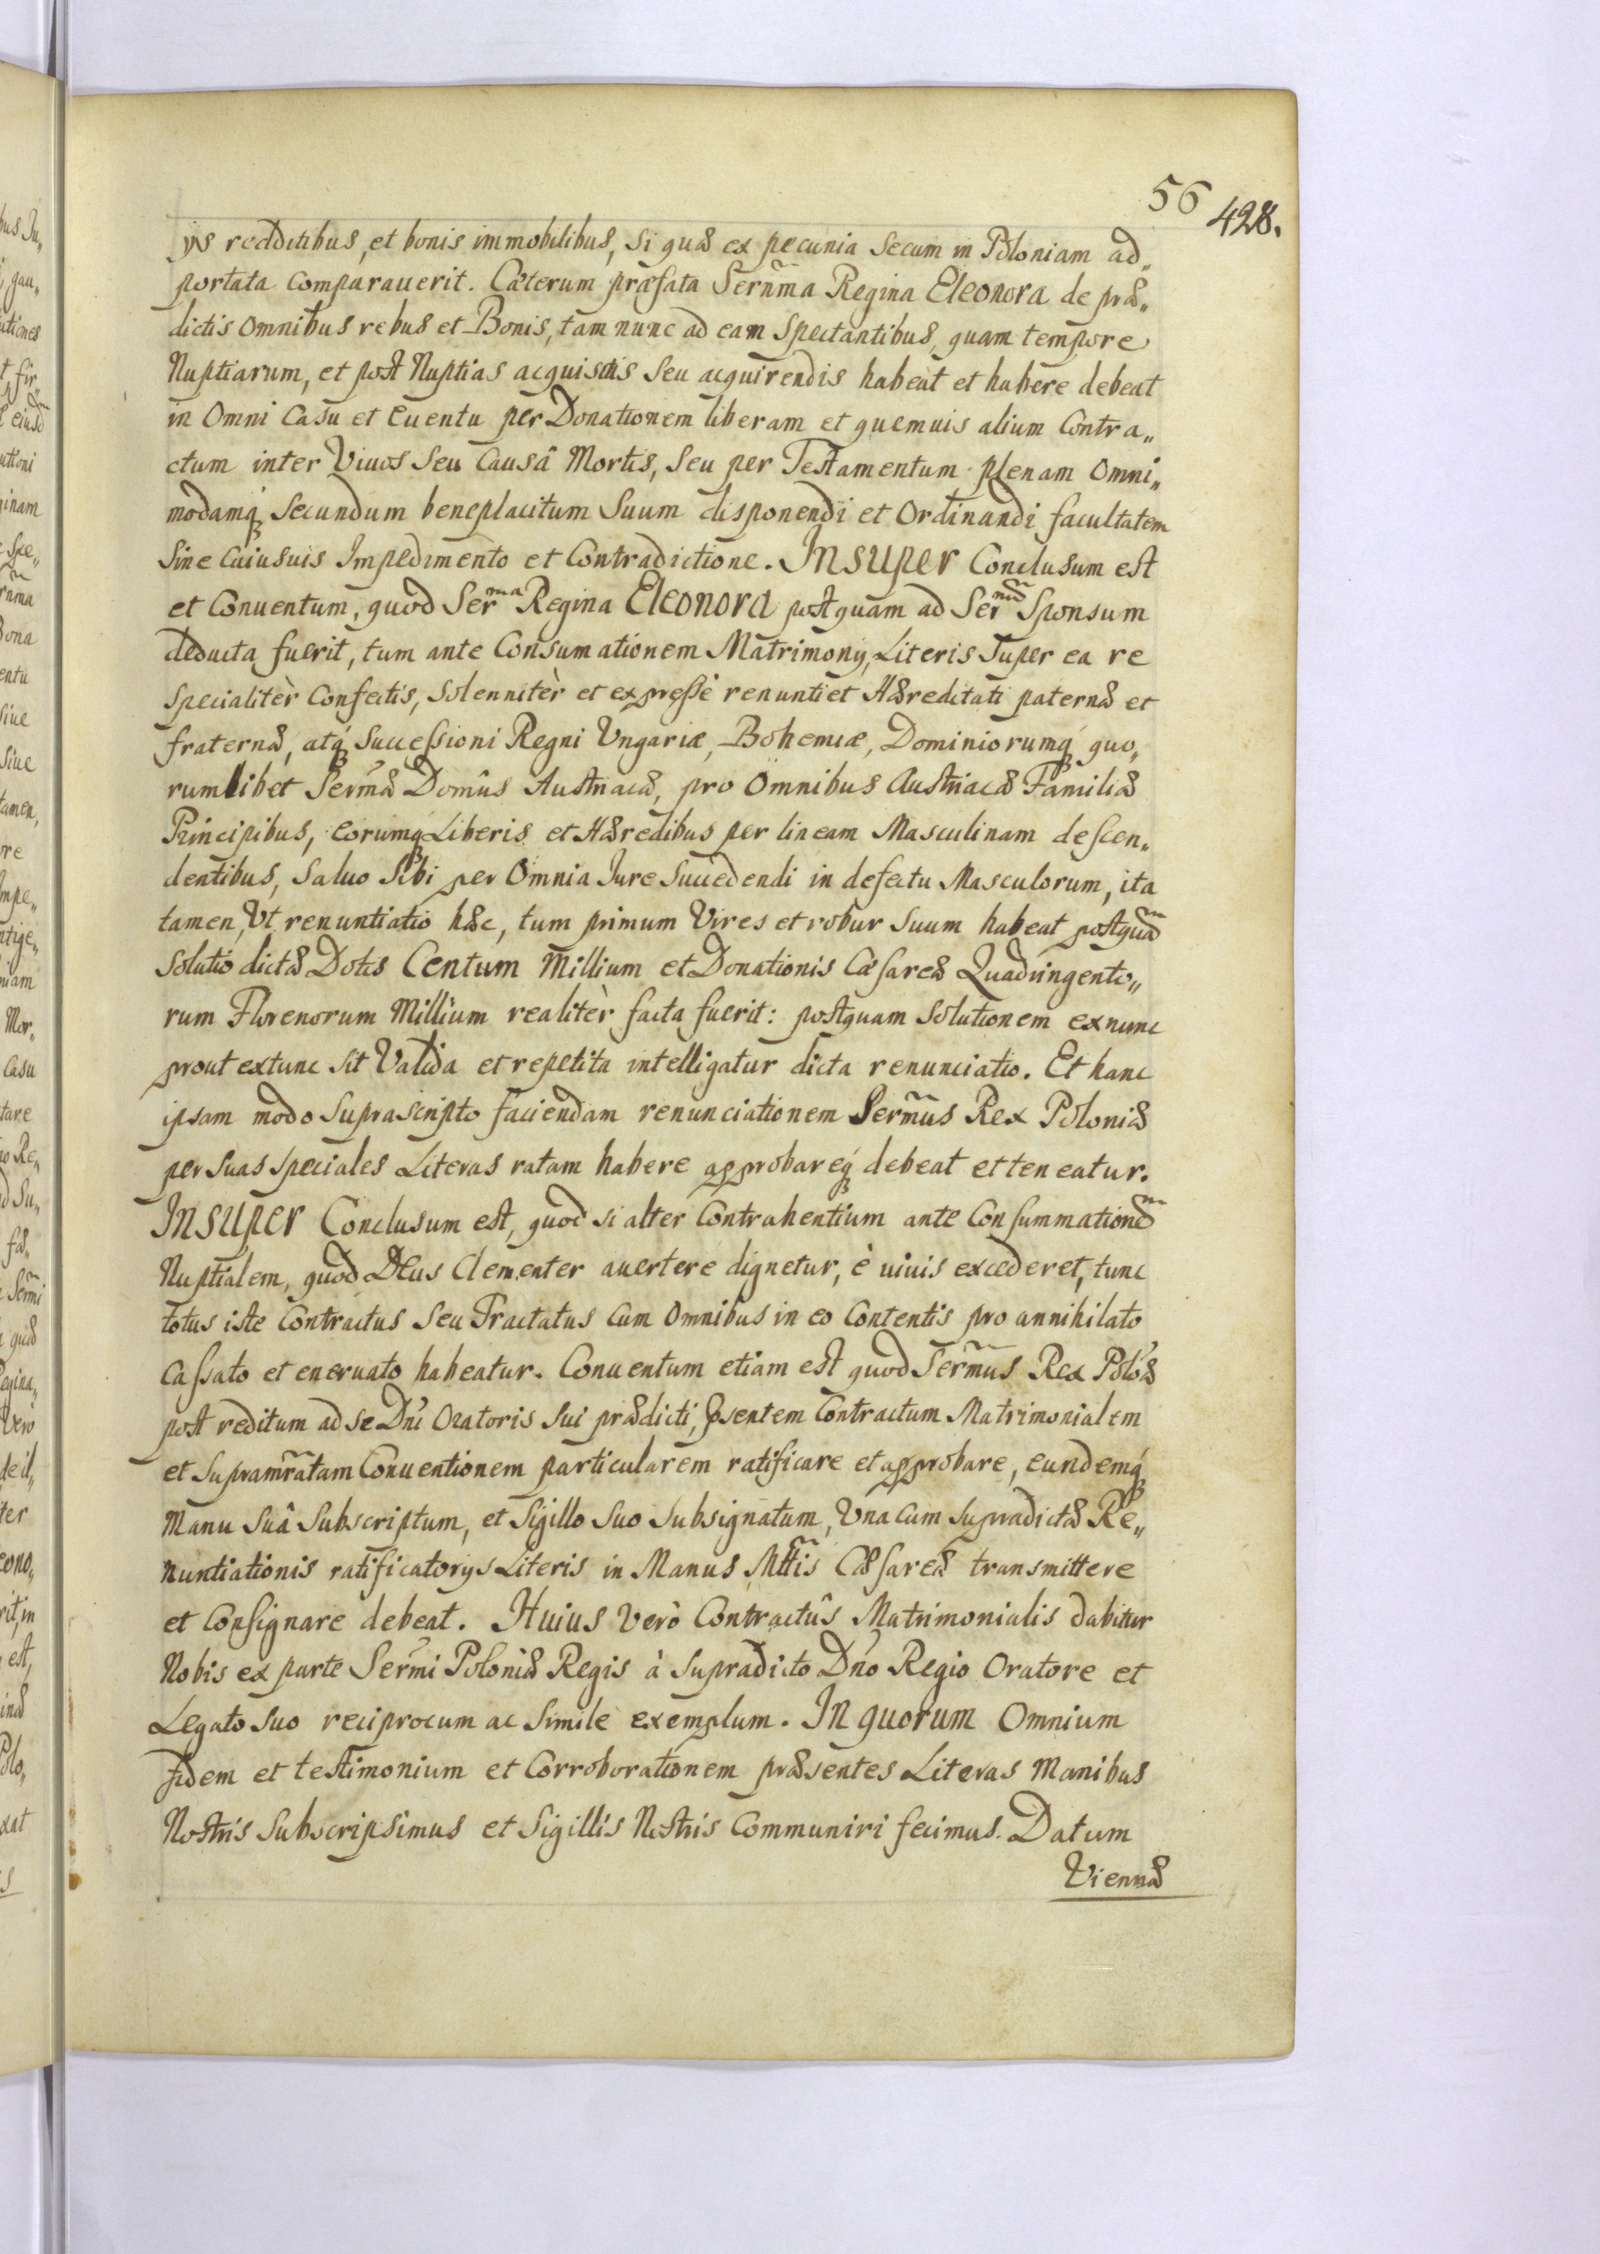 56
428.
ijs redditibus, et bonis immobilibus, si quæ ex pecunia Secum in Poloniam ad„
portata Comparauerit. Cæterum præfata Sernma Regina Eleonora de præ„
dictis Omnibus rebus et Bonis, tam nunc ad eam Spectantibus, quam tempore
Nuptiarum, et post Nuptias acquisitis Seu acquirendis habeat et habere debeat
in Omni Casu et Euentu per Donationem liberam et quemuis alium Contra„
ctum inter Viuos Seu Causâ Mortis, Seu per Testamentum plenam Omni„
modamq́ Secundum beneplacitum Suum disponendi et Ordinandi facultatem
Sine Cuiusuis Impedimento et Contradictione. Insuper Conclusum est
et Conuentum, quod Serma Regina Eleonora postquam ad Sernũ Sponsum
deducta fuerit, tum ante Consumationem Matrimonij, Literis Super ea re
Specialitèr Confectis, Solennitèr et expressè renuntiet Hæreditati paternæ et
fraternæ, atq́ Successioni Regni Vngariæ, Bohemiæ, Dominiorumq́ quo„
rumlibet Sermæ Domûs Austriacæ, pro Omnibus Austriacæ Familiæ
Principibus, eorumq́ Liberis et Hæredibus per lineam Masculinam descen„
dentibus, Saluo Sibi per Omnia Jure Succedendi in defectu Masculorum, ita
tamen, Vt renuntiatio hæc, tum primum Vires et robur Suum habeat postquã
Solutio dictæ Dotis Centum Millium et Donationis Cæsareæ Quadringento„
rum Florenorum Millium realitèr facta fuerit: postquam Solutionem exnunc
prout extunc sit Valida et repetita intelligatur dicta renunciatio. Et hanc
ipsam modo Suprascripto faciendam renunciationem Serm̃us Rex Poloniæ
per Suas Speciales Literas ratam habere approbareq́ debeat et teneatur.
Insuper Conclusum est, quod si alter Contrahentium ante Consummationẽ
Nuptialem, quod Deus Clementer auertere dignetur, è uiuis excederet, tunc
totus iste Contractus Seu Tractatus Cum Omnibus in eo Contentis pro annihilato
Cassato et eneruato habeatur. Conuentum etiam est quod Serm̃us Rex Polóæ
post reditum ad se Dńi Oratoris Sui prædicti, p̃sentem Contractum Matrimonialem
et Supramr̃atam Conuentionem particularem ratificare et approbare, eundemq́
Manu Suâ Subscriptum, et Sigillo Suo Subsignatum, Vna Cum Supradictæ Re„
nuntiationis ratificatorijs Literis in Manus Mttis̃ Cæsareæ transmittere
et Consignare debeat. Huius Verò Contractûs Matrimonialis dabitur
Nobis ex parte Sermi Poloniæ Regis à Supradicto Dńo Regio Oratore et
Legato Suo reciprocum ac Simile exemplum. In quorum Omnium
fidem et testimonium et Corroborationem præsentes Literas Manibus
Nostris Subscripsimus et Sigillis Nostris Communiri fecimus. Datum
Viennæ